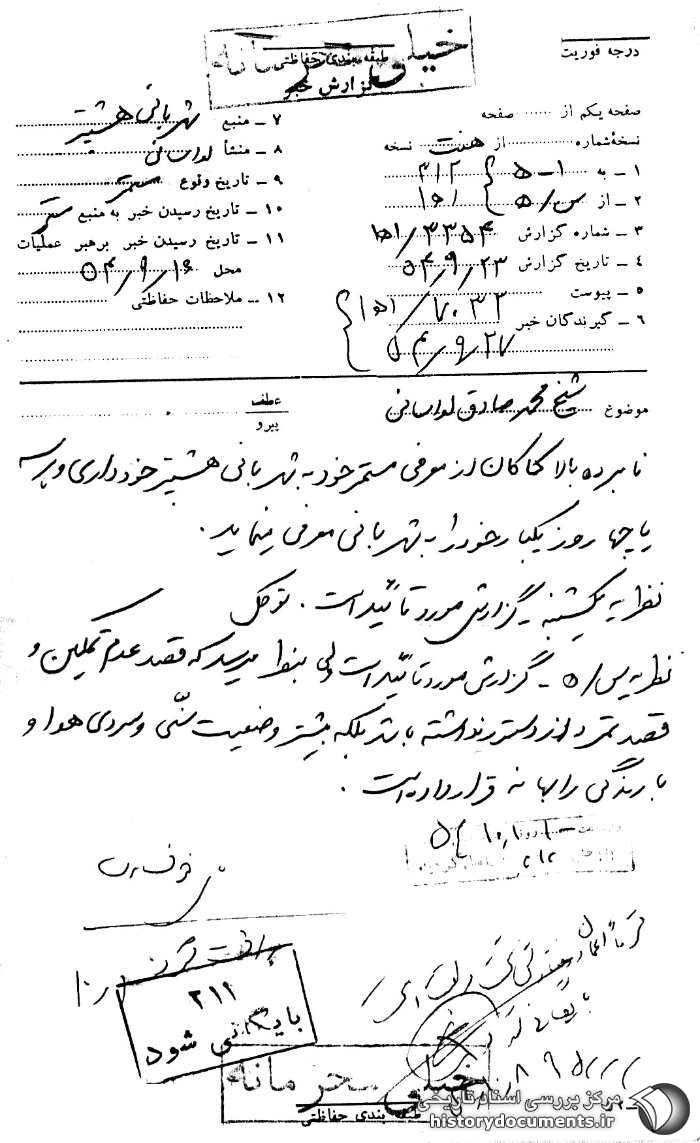 خیلی محرمانه
طبقه بندی حفاظتی
گزارش خبر
درجه فوریت
صفحه یکم از ...... صفحه
نسخه شماره ...... از هفت نسخه
۱ - به ۵-۱ ۳۱۲
۲ - از س/۵ ۱۵۱
۳ - شماره گزارش ۱۵۱/۳۳۵۴
۴ - تاریخ گزارش ۵۴/۹/۲۳
۵ - پیوست
۶ - گیرندگان خبر ۱۵۱/۷۰۳۲
۵۴/۹/۲۷
۷ - منبع شهربانی هشتپر
۸ - منشأ لواسانی
۹ - تاریخ وقوع مستمر
۱۰ - تاریخ رسیدن خبر به منبع مستمر
۱۱ - تاریخ رسیدن خبر برهبر عملیات
محل ۵۴/۹/۱۶
۱۲ - ملاحظات حفاظتی
موضوع شیخ محمد صادق لواسانی
عطف
پیرو
نامبرده بالا کماکان از معرفی مستمر خود به شهربانی هشتپر خودداری و هر سه
یا چهار روز یکبار خود را به شهربانی معرفی مینماید.
نظریه یکشنبه - گزارش مورد تأئید است. توکل
نظریه س/۵ - گزارش مورد تأئید است ولی بنظر میرسد که قصد عدم تمکین و
قصد تمرد از دستور نداشته باشد بلکه بیشتر وضعیت سنّی و سردی هوا و
بارندگی را بهانه قرار داده است.
۲۱۱
بایگانی شود
خیلی محرمانه
طبقه بندی حفاظتی
مرکز بررسی اسناد تاریخی
historydocuments.ir